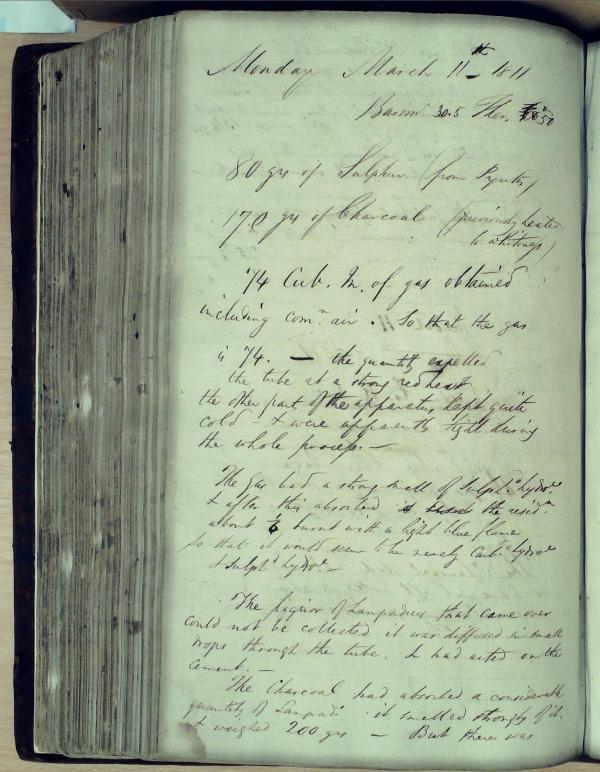 Monday March 11th 1811
Barom 30.5 Ther. 50
80 grs of Sulphur (from Pyrites)
170 grs of Charcoal (previously heated
to whiteness)
74 Cub. In. of gas obtained
including comn. air. So that the gas
is 74. — the quantity expelled
the tube at a strong red heat
the other part of the apparatus kept quite
cold - & were apparently tight during
the whole process. —
The gas had a strong smell of Sulphd. hydroe.
& after this absorbed the residm
about 1/6 burnt with a light blue flame
so that it would seem to be merely Carbd. hydroe
& Sulphd. hydroe. —
The liquor of Lampadius that came over
could not be collected it was diffused in small
drops through the tube, & had acted on the
cement. —
The Charcoal had absorbed a considerable
quantity of Lampads. it smelled strongly of it.
& weighed 200 grs — But there was